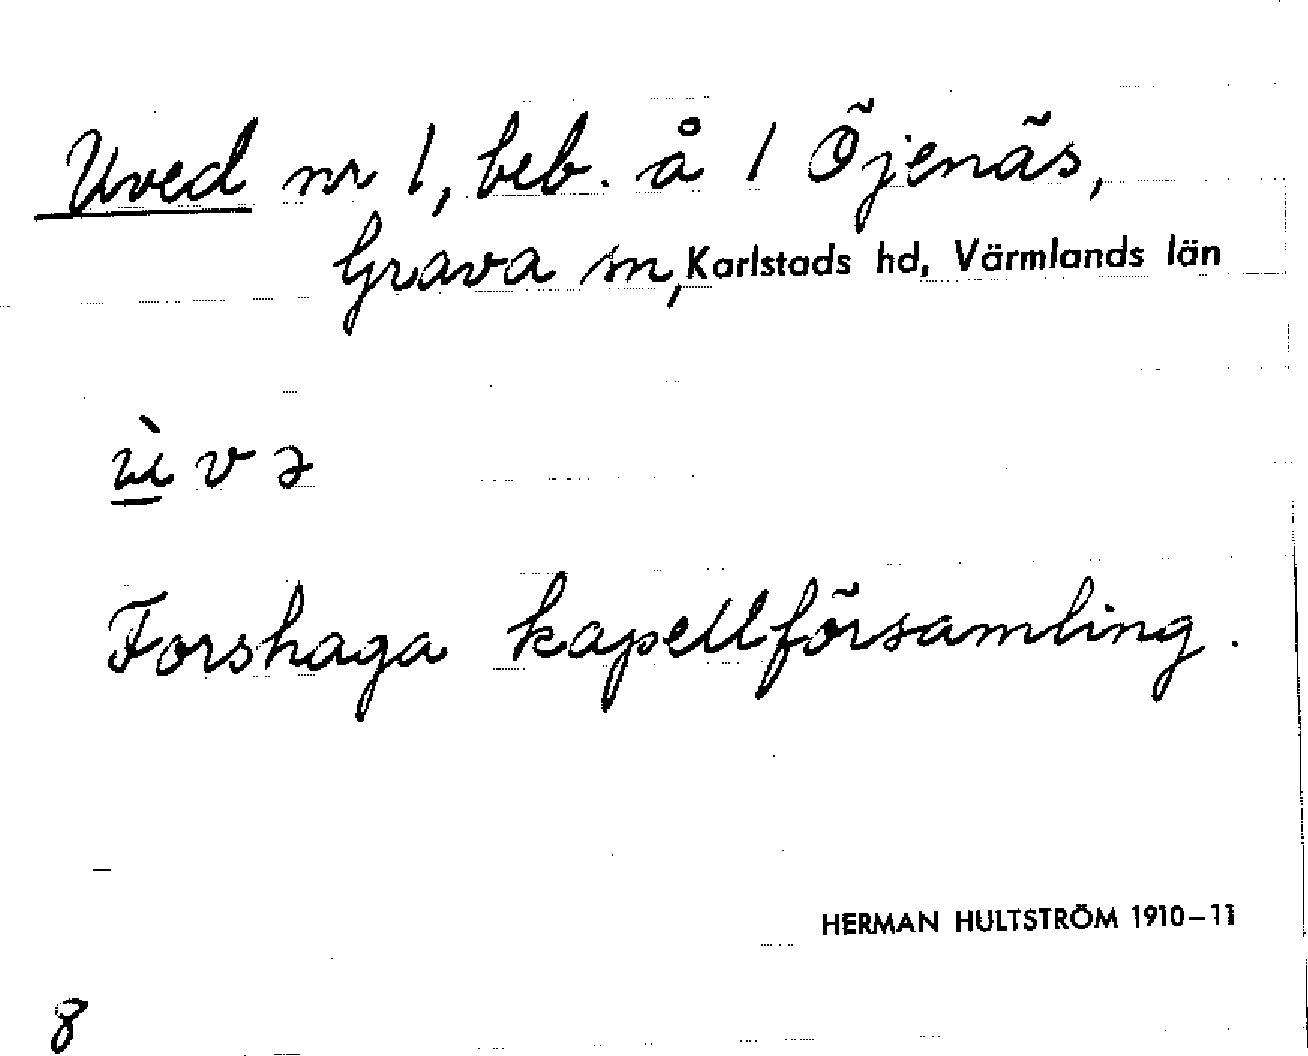 Uved nr 1, beb. å 1 Öjenäs,
Grava sn, Karlstads hd, Värmlands län
ùvə
Forshaga kapellförsamling.
HERMAN HULTSTRÖM 1910–11
8